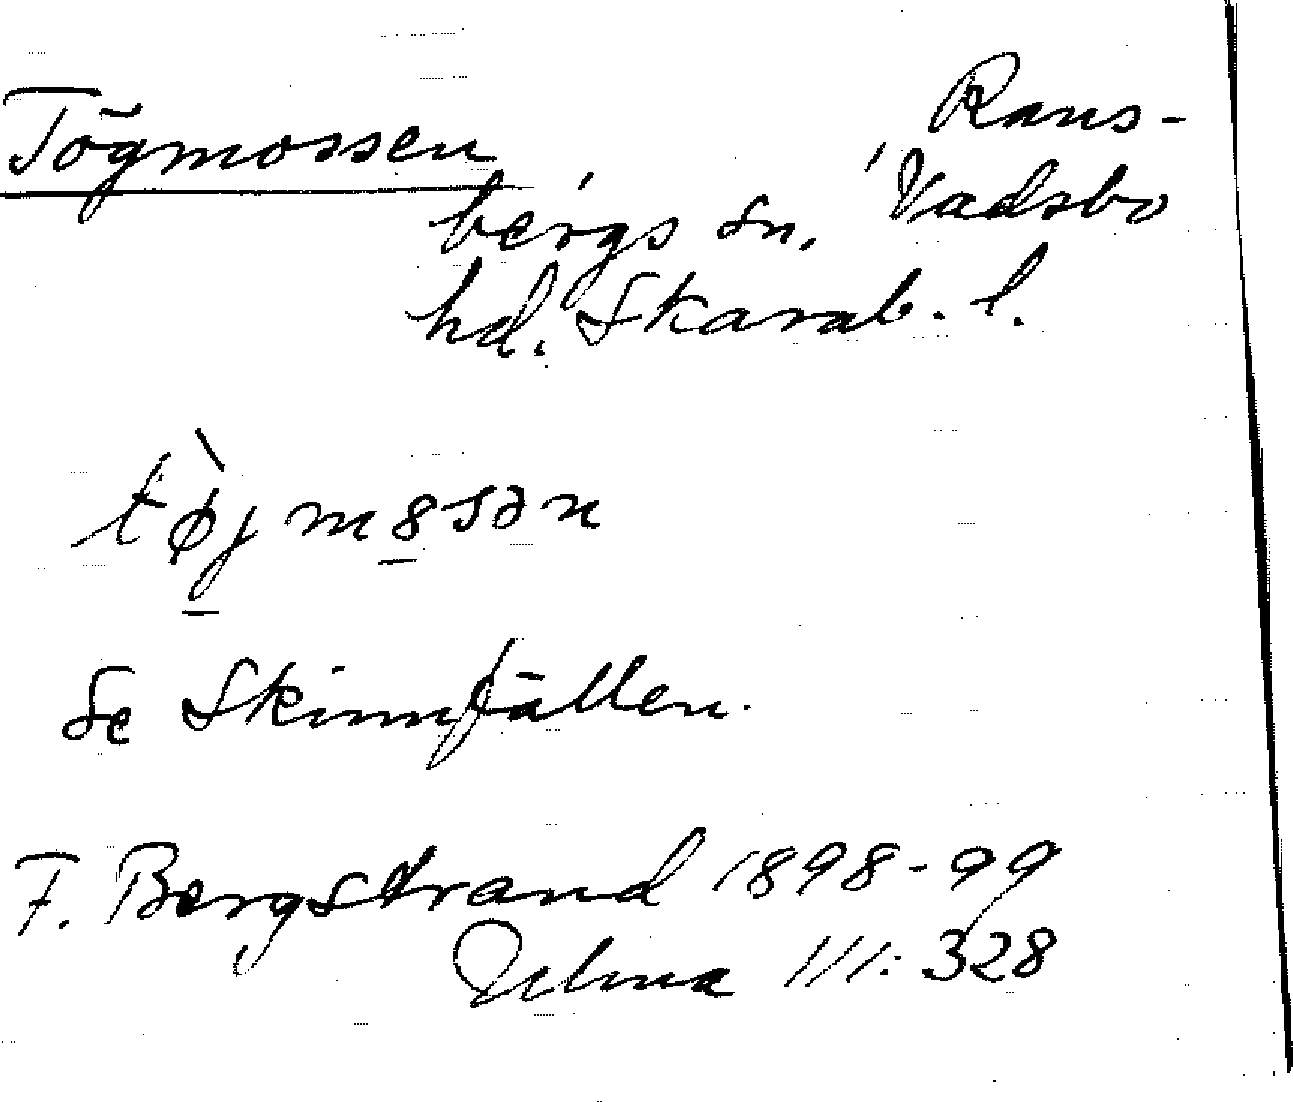 Tögmossen Rans-
bergs sn, Vadsbo
hd. Skarab. l.
tø̀jmɞsən
se Skinnfällen.
F. Bergstrand 1898-99
Ulma 111:328